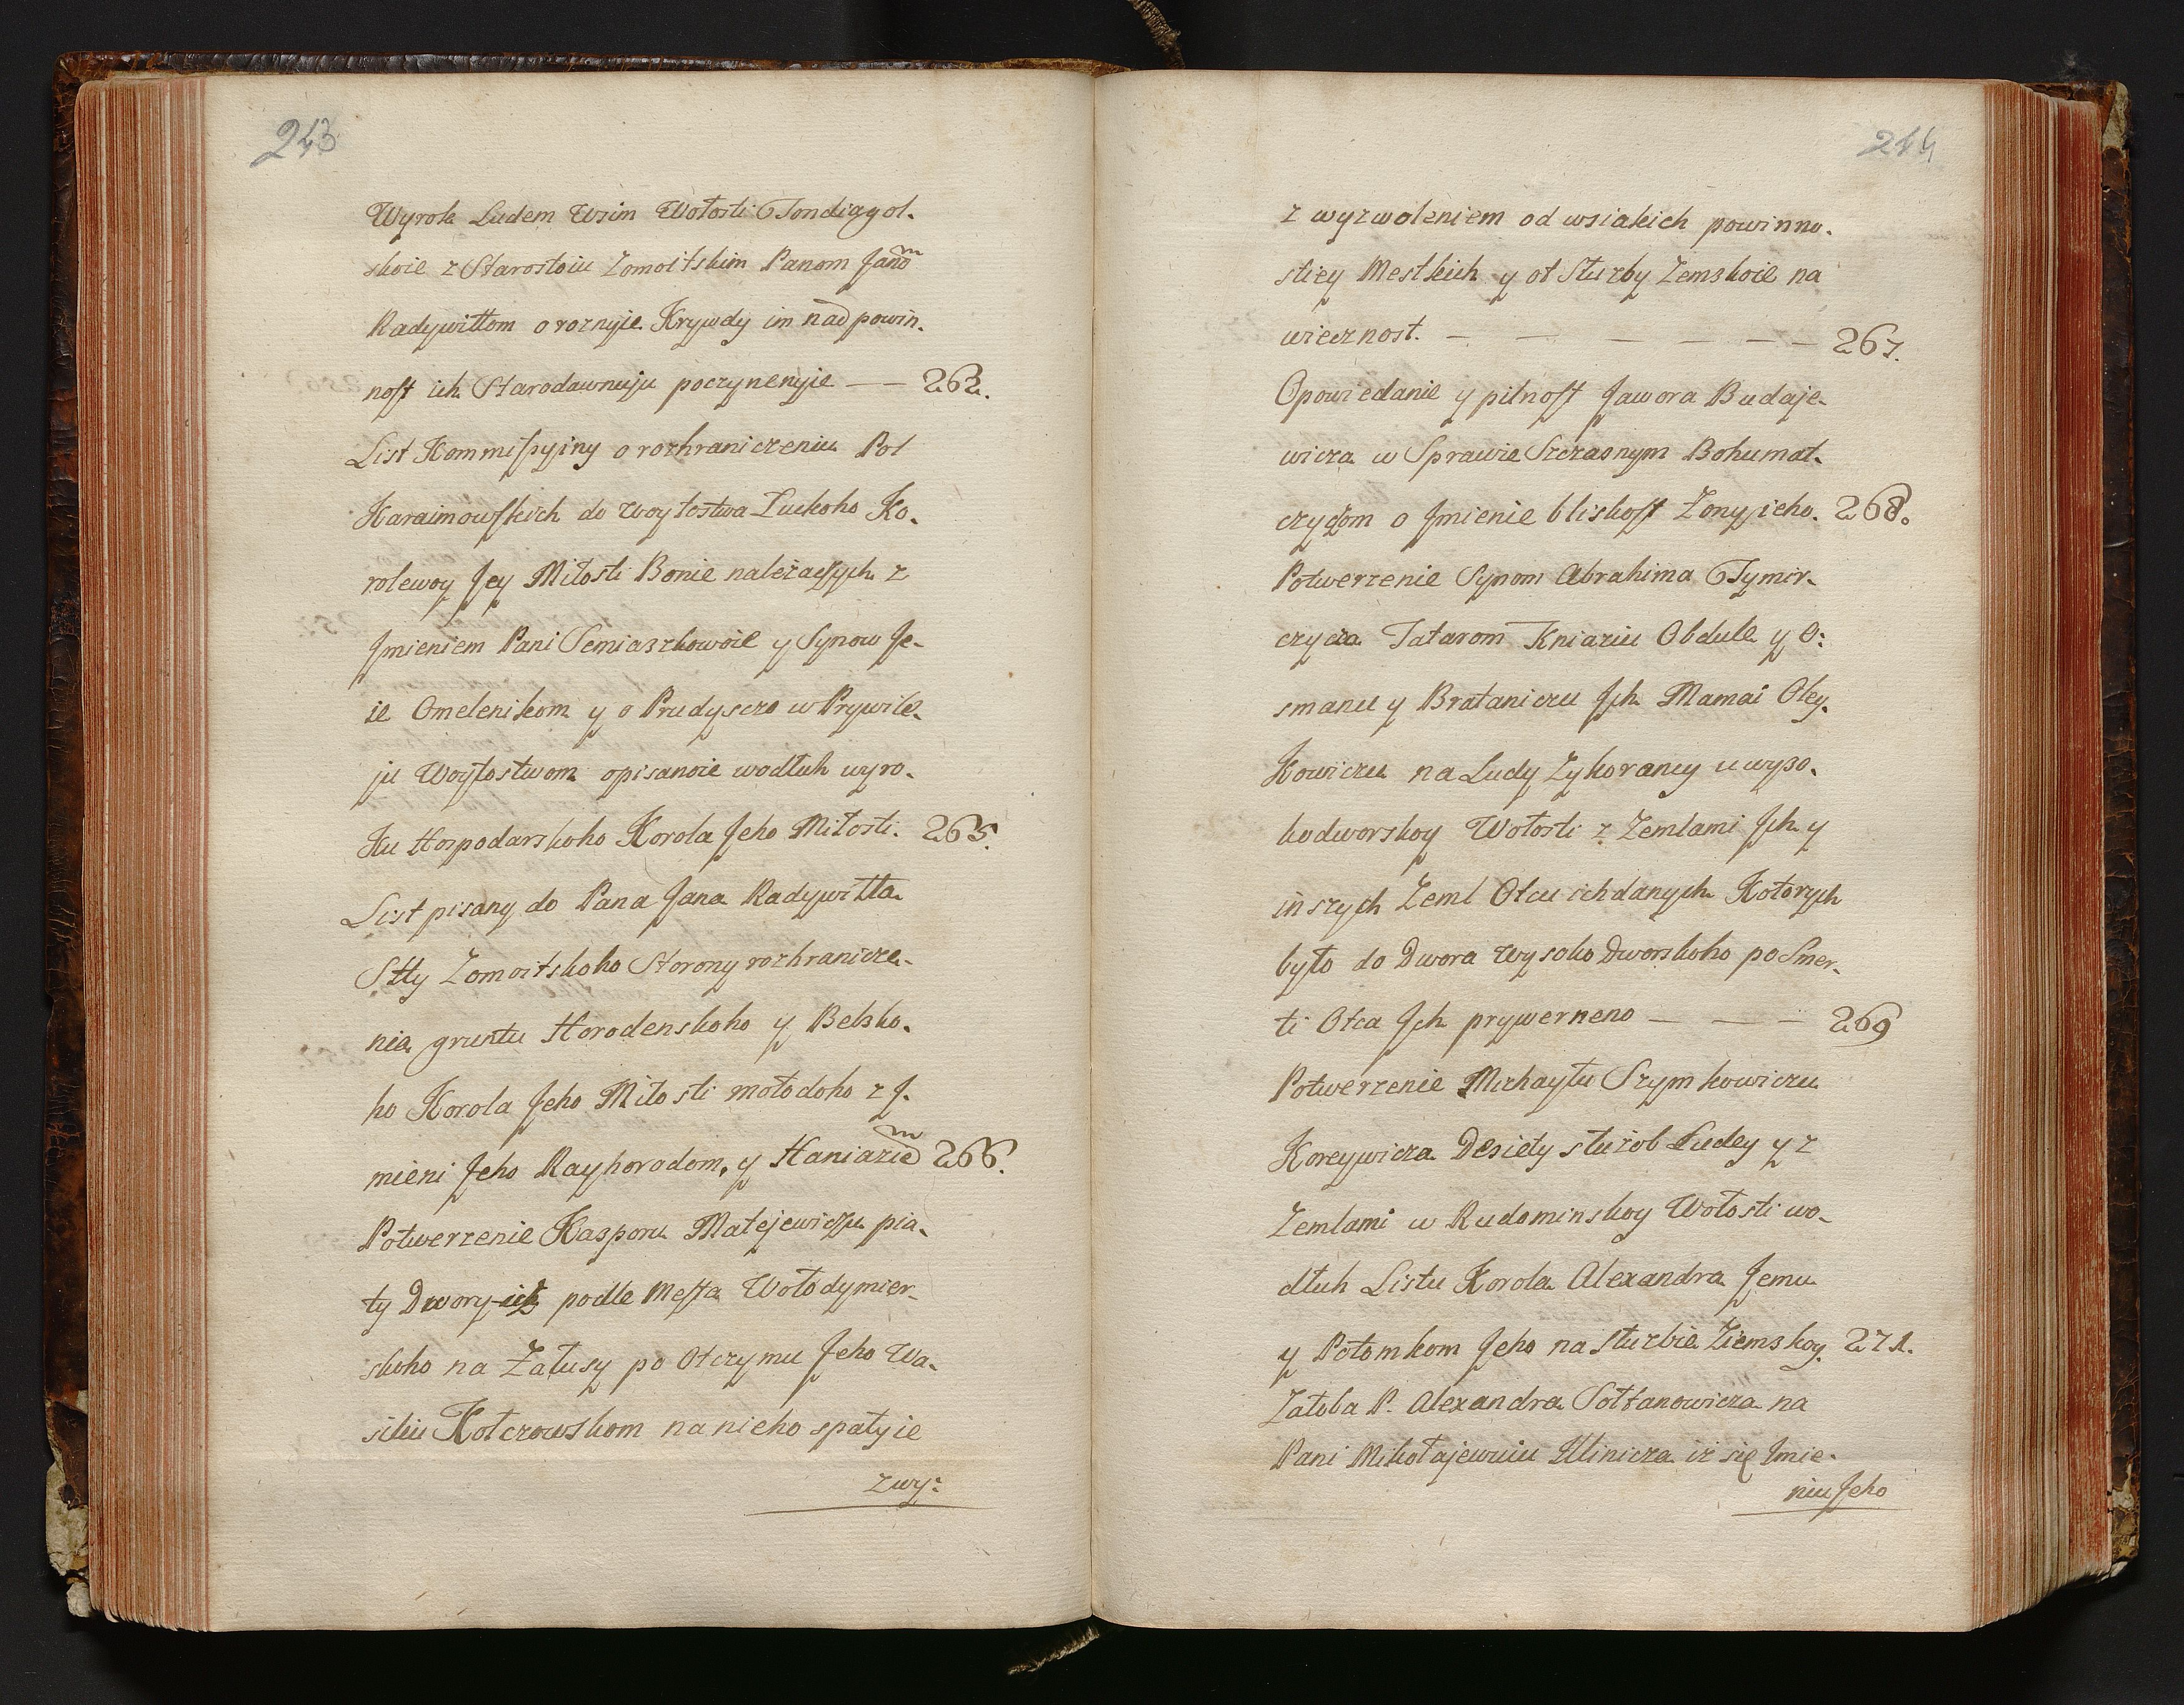 243
Wyrok Ludem Wsim Wołosti Tondiagol-
skoie z Starostoiu Zomoitskim Panom Janom
Radywiłłom o roznyie Krywdy im nad powin-
nost ich Starodawnuju poczynenyie — — 262.
List Kommissyiny o rozhraniczeniu Pol
Karaimowskich do woytostwa Łuckoho Ko-
rolewoy Jey Miłosti Bonie należaczych z
Jmieniem Pani Semiaszkowoie y Synow Je-
ie Omelenikom y o Prudyscze w Prywile-
ju Woytostwom opisanoie wodłuh wyro-
Ku Hospodarskoho Korola Jeho Miłosti. 265.
List pisany do Pana Jana Radywiłła
Stty Zomoitskoho Storony rozhranicze-
nia gruntu Horodenskoho y Belsko-
ho Korola Jeho Miłosti mołodoho z J-
mieni Jeho Rayhorodom, y Haniaziem 266.
Potwerzenie Kasporu Matejewiczu pia-
ty Dwory-ich podle Mesta Wołodymier-
skoho na Załusy po Otczymu Jeho Wa-
siliu Kołczowskom na nieho spałyie
zwy:
244
z wyzwoleniem od wsiakich powinno-
stiey Mestkich y ot Służby Zemskoie na
wiecznost. — — — — — — 267.
Opowiedanie y pilnost Jawora Budaje-
wicza w Sprawie Szczasnym Bohumat-
czyczom o Jmienie bliskost Zony jeho. 268.
Potwerzenie Synom Abrahima Tymir-
czycza Tatarom Kniaziu Obdule y O:
smanu y Brataniczu Jch Mamai Oley-
Kowiczu na Ludy Zykorancy u wyso-
kodworskoy Wołosti z Zemlami Jch y
inszych Zeml Otcu ich danych Kotorych
było do Dwora Wysoko Dworskoho po Smer-
ti Otca Jch prywerneno — — — 269
Potwerzenie Michayłu Szymkowiczu
Koreywicza Desiety służob Ludey y z
Zemlami w Rudominskoy Wołosti wo-
dłuh Listu Korola Alexandra Jemu
y Potomkom Jeho na służbie Ziemskoy. 271.
Załoba P. Alexandra Sołtanowicza na
Pani Mikołajewuiu Jllinicza iż się Jmie-
niu Jeho